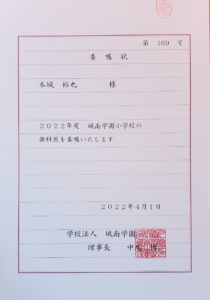 第 169 号
委嘱状
本城 裕也 様
2022年度 城南学園小学校の
歯科医を委嘱いたします
2022年4月1日
学校法人 城南学園
理事長 中